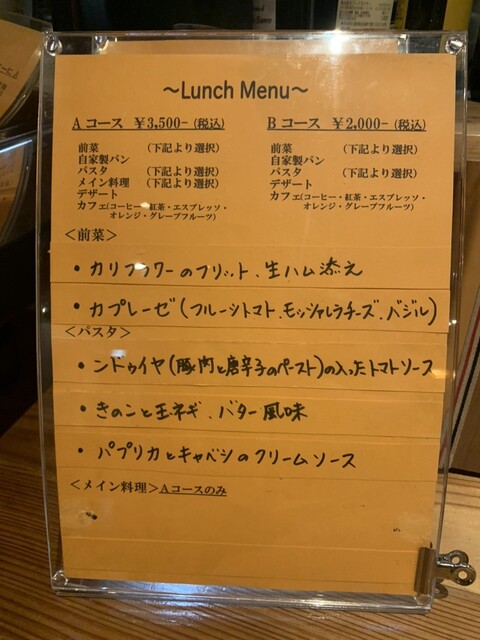 ～Lunch Menu～
Aコース ￥3,500-（税込）
前菜 （下記より選択）
自家製パン
パスタ （下記より選択）
メイン料理 （下記より選択）
デザート
カフェ(コーヒー・紅茶・エスプレッソ・
オレンジ・グレープフルーツ)
Bコース ￥2,000-（税込）
前菜 （下記より選択）
自家製パン
パスタ （下記より選択）
デザート
カフェ(コーヒー・紅茶・エスプレッソ・
オレンジ・グレープフルーツ)
＜前菜＞
・カリフラワーのフリット、生ハム添え
・カプレーゼ(フルーツトマト、モッツァレラチーズ、バジル)
＜パスタ＞
・ンドゥイヤ(豚肉と唐辛子のペースト)の入ったトマトソース
・きのこと玉ネギ、バター風味
・パプリカとキャベツのクリームソース
＜メイン料理＞Aコースのみ